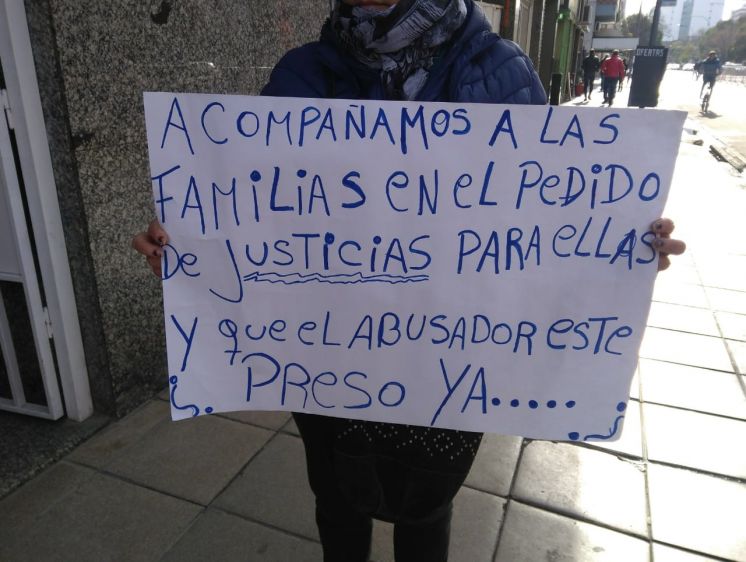 OFERTAS
ACOMPAÑAMOS A LAS
FAMILIAS EN EL PEDIDO
De JUSTICIAS PARA ELLAS
Y que eL ABUSADOR ESTE
PRESO YA.....